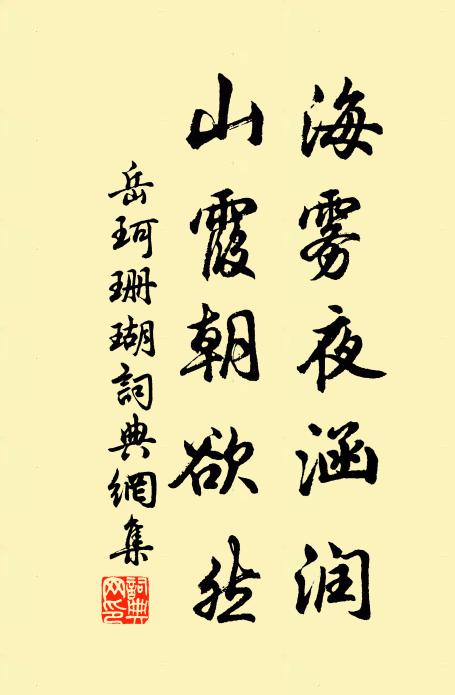 海雾夜涵润
山霞朝欲然
岳珂珊瑚詞典網集
詞典网印